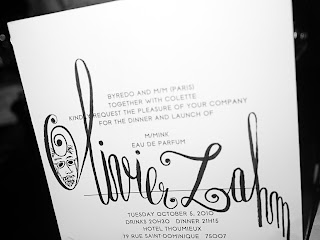 BYREDO AND M/M (PARIS)
TOGETHER WITH COLETTE
KINDLY REQUEST THE PLEASURE OF YOUR COMPANY
FOR THE DINNER AND LAUNCH OF
M/MINK
EAU DE PARFUM
Olivier Zahm
TUESDAY OCTOBER 5, 2010
DRINKS 20H20 DINNER 21H15
HOTEL THOUMIEUX
79 RUE SAINT-DOMINIQUE 75007